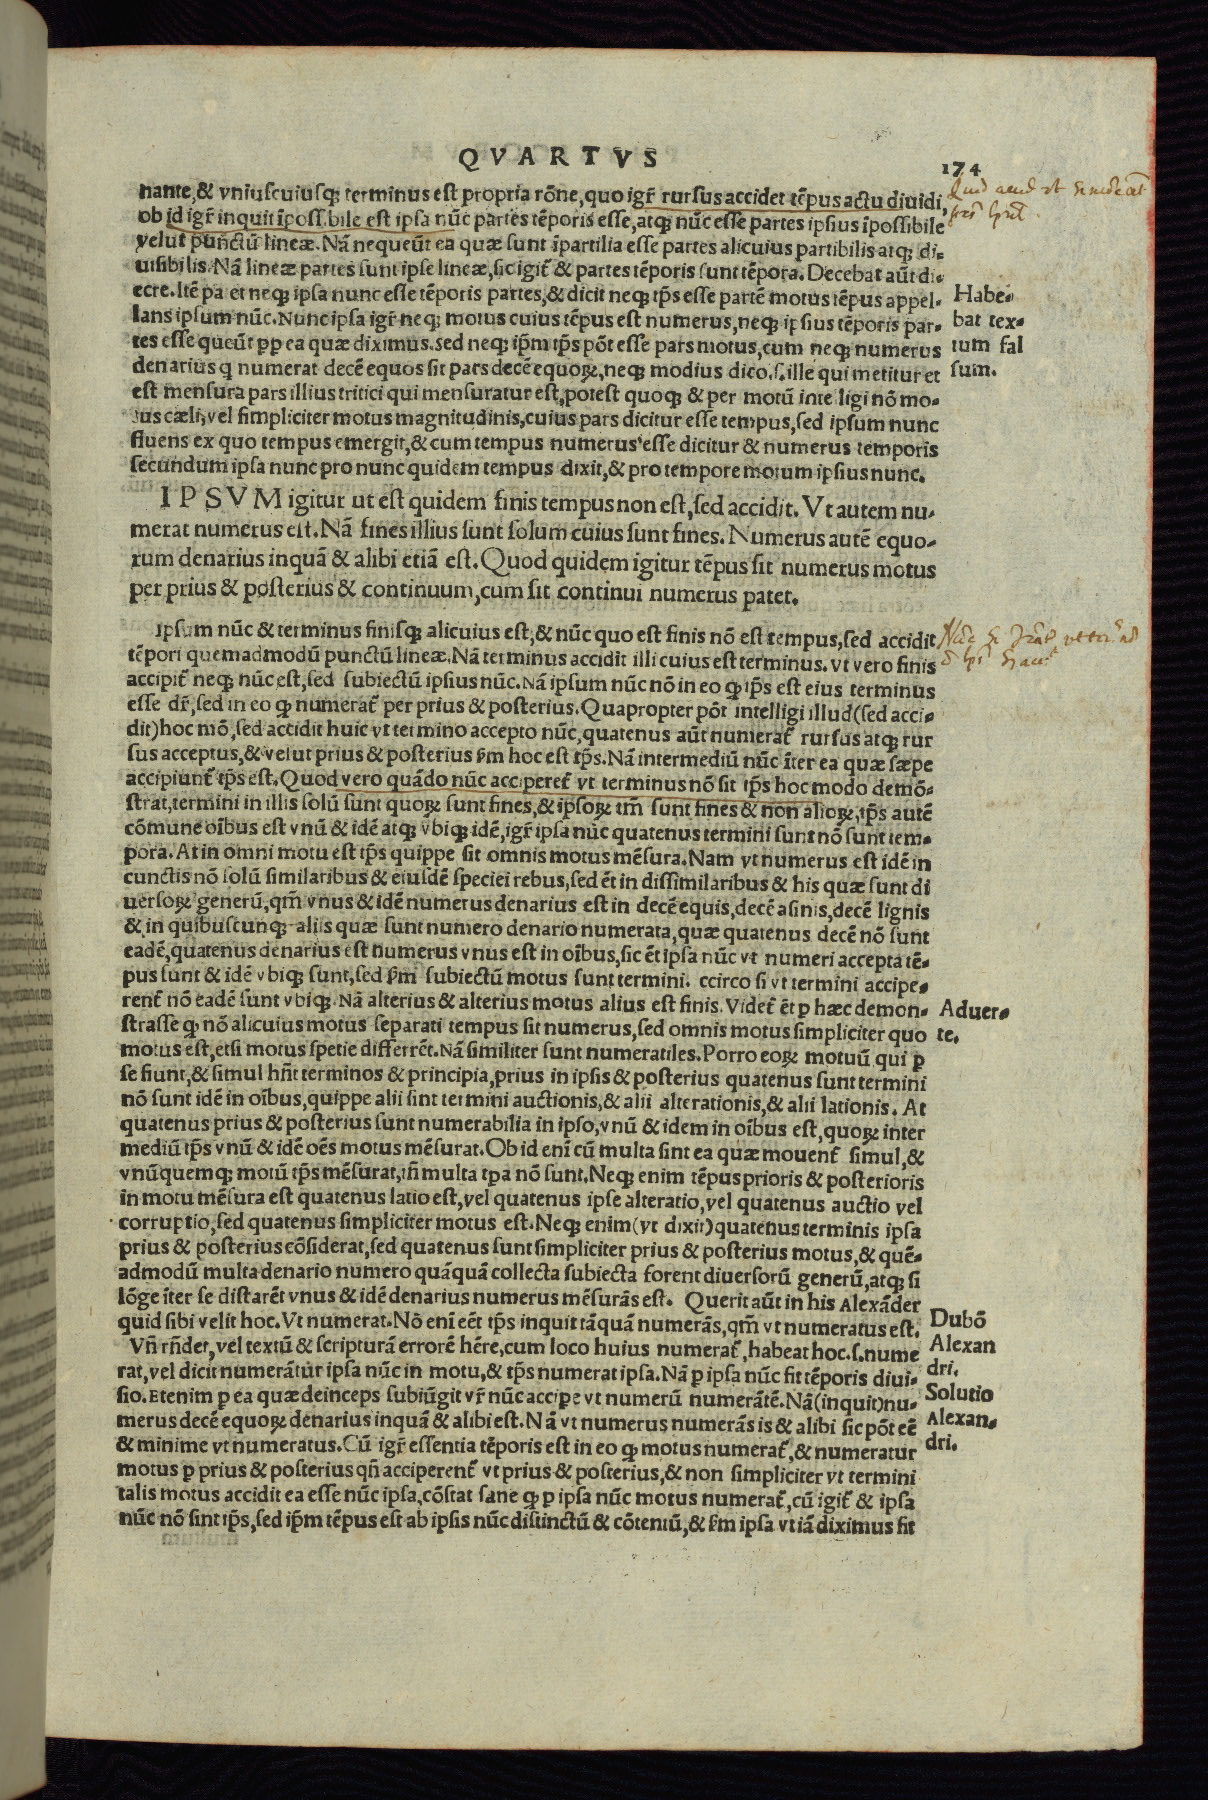 QVARTVS
174
nante,& vniuscuiusqꝫ terminus est propria rōne,quo igr̄ rursus accidet tēpus actu diuidi,
ob id igr̄ inquit īposs.bile est ipsa nūc partes tēporis esse,atqꝫ nūc esse partes ipsius īpossibile
velut punctū lineæ. Nā nequeūt ea quæ sunt īpartilia esse partes alicuius partibilis atqꝫ di-
uisibilis. Nā lineæ partes sunt ipse lineæ,sic igit̄ & partes tēporis sunt tēpora. Decebat aūt di-
ecre. Itē pa et neqꝫ ipsa nunc esse tēporis partes,& dicit neqꝫ tp̄s esse partē motus tēpus appel-
lans ipsum nūc. Nunc ipsa igr̄ neqꝫ motus cuius tēpus est numerus,neqꝫ ipsius tēporis par-
tes esse queūt ꝓp ea quæ diximus. Sed neqꝫ ip̄m tp̄s pōt esse pars motus,cum neqꝫ numerus
denarius q numerat decē equos sit pars decē equoꝝ,neqꝫ modius dico.s.ille qui metitur et
est mensura pars illius tritici qui mensuratur est,potest quoqꝫ & per motū inte ligi nō mo-
ius cæli,vel simpliciter motus magnitudinis,cuius pars dicitur esse tempus,sed ipsum nunc
fluens ex quo tempus emergit,& cum tempus numerus esse dicitur & numerus temporis
secundum ipsa nunc pro nunc quidem tempus dixit,& pro tempore motum ipsius nunc.
Habe-
bat tex-
tum fal
sum.
IPSVM igitur ut est quidem finis tempus non est,sed accidit. Vt autem nu-
merat numerus est. Nā fines illius sunt solum cuius sunt fines. Numerus autē equo-
rum denarius inquā & alibi etiā est. Quod quidem igitur tēpus sit numerus motus
per prius & posterius & continuum,cum sit continui numerus patet.
Ipsum nūc & terminus finisqꝫ alicuius est,& nūc quo est finis nō est tempus,sed accidit
tēpori quemadmodū punctū lineæ. Nā terminus accidit illi cuius est terminus. vt vero finis
accipit̄ neqꝫ nūc est,sed subiectū ipsius nūc. Nā ipsum nūc nō in eo ꝙ ip̄s est eius terminus
esse dr̄,sed in eo ꝙ numerat̄ per prius & posterius. Quapropter pōt intelligi illud(sed acci-
dit)hoc mō,sed accidit huic vt termino accepto nūc,quatenus aūt numerat̄ rursus atqꝫ rur
sus acceptus,& velut prius & posterius ſm hoc est tp̄s. Nā intermediū nūc īter ea quæ sæpe
accipiunt̄ tp̄s est. Quod vero quādo nūc acciperet̄ vt terminus nō sit tp̄s hoc modo demō-
strat,termini in illis solū sunt quoꝝ sunt fines,& ipsoꝝ tm̄ sunt fines & non alioꝝ,tp̄s autē
cōmune oībus est vnū & idē atqꝫ vbiqꝫ idē,igr̄ ipsa nūc quatenus termini sunt nō sunt tem-
pora. At in omni motu est tp̄s quippe sit omnis motus mēsura. Nam vt numerus est idē in
cunctis nō solū similaribus & eiusdē speciei rebus,sed ēt in dissimilaribus & his quæ sunt di
uersoꝝ generū,qm̄ vnus & idē numerus denarius est in decē equis,decē asinis,decē lignis
& in quibuscunqꝫ aliis quæ sunt numero denario numerata,quæ quatenus decē nō sunt
eadē,quatenus denarius est numerus vnus est in oībus,sic ēt ipsa nūc vt numeri accepta tē-
pus sunt & idē vbiqꝫ sunt,sed ſm subiectū motus sunt termini. ccirco si vt termini accipe-
rent̄ nō eadē sunt vbiqꝫ. Nā alterius & alterius motus alius est finis. Videt̄ ēt ꝑ hæc demon-
strasse ꝙ nō alicuius motus separati tempus sit numerus,sed omnis motus simpliciter quo
motus est,etsi motus spetie differrēt. Nā similiter sunt numeratiles. Porro eoꝝ motuū qui ꝑ
se fiunt,& simul hn̄t terminos & principia,prius in ipsis & posterius quatenus sunt termini
nō sunt idē in oībus,quippe alii sint termini auctionis,& alii alterationis,& alii lationis. At
quatenus prius & posterius sunt numerabilia in ipso,vnū & idem in oībus est,quoꝝ inter
mediū tp̄s vnū & idē oēs motus mēsurat. Ob id enī cū multa sint ea quæ mouent̄ simul,&
vnūquemqꝫ motū tp̄s mēsurat,tn̄ multa tp̄a nō sunt. Neqꝫ enim tēpus prioris & posterioris
in motu mēsura est quatenus latio est,vel quatenus ipse alteratio,vel quatenus auctio vel
corruptio,sed quatenus simpliciter motus est. Neqꝫ enim(vt dixit)quatenus terminis ipsa
prius & posterius cōsiderat,sed quatenus sunt simpliciter prius & posterius motus,& quē-
admodū multa denario numero quāquā collecta subiecta forent diuersorū generū,atqꝫ si
lōge īter se distarēt vnus & idē denarius numerus mēsurās est. Querit aūt in his Alexāder
quid sibi velit hoc. Vt numerat. Nō enī eēt tp̄s inquit tāquā numerās,qm̄ vt numeratus est.
Vn̄ rn̄det,vel textū & scripturā errorē hēre,cum loco huius numerat̄,habeat hoc.s.nume
rat,vel dicit numerātur ipsa nūc in motu,& tp̄s numerat ipsa. Nā ꝑ ipsa nūc fit tēporis diui-
sio. Etenim ꝑ ea quæ deinceps subiūgit vr̄ nūc accipe vt numerū numerātē. Nā(inquit)nu-
merus decē equoꝝ denarius inquā & alibi est. Nā vt numerus numerās is & alibi sic pōt eē
& minime vt numeratus. Cū igr̄ essentia tēporis est in eo ꝙ motus numerat̄,& numeratur
motus ꝑ prius & posterius qn̄ acciperent̄ vt prius & posterius,& non simpliciter vt termini
talis motus accidit ea esse nūc ipsa,cōstat sane ꝙ ꝑ ipsa nūc motus numerat̄,cū igit̄ & ipsa
nūc nō sint tp̄s,sed ip̄m tēpus est ab ipsis nūc distinctū & cōtentū,& ſm ipsa vt iā diximus fit
Aduer-
te.
Dubō
Alexan
dri.
Solutio
Alexan-
dri.